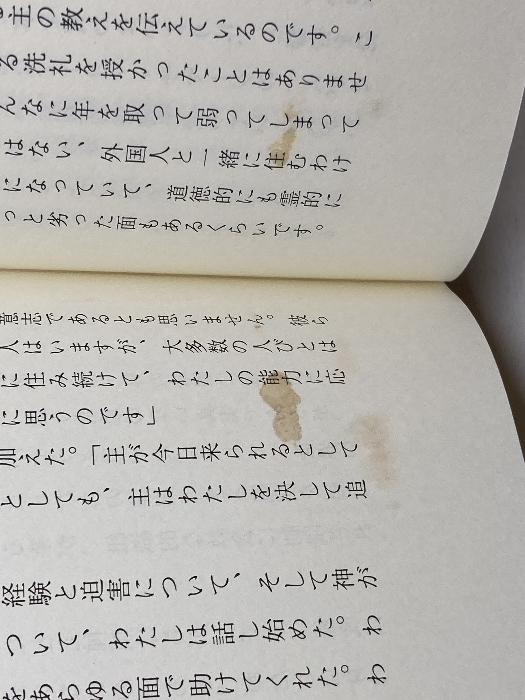 主の教えを伝えているのです。こ
る洗礼を授かったことはありませ
んなに年を取って弱ってしまって
はない、外国人と一緒に住むわけ
になっていて、道徳的にも霊的に
っと劣った面もあるくらいです。
意志であるとも思いません。彼ら
人はいますが、大多数の人びとは
に住み続けて、わたしの能力に応
に思うのです」
加えた。「主が今日来られるとして
としても、主はわたしを決して追
経験と迫害について、そして神が
ついて、わたしは話し始めた。わ
をあらゆる面で助けてくれた。わ